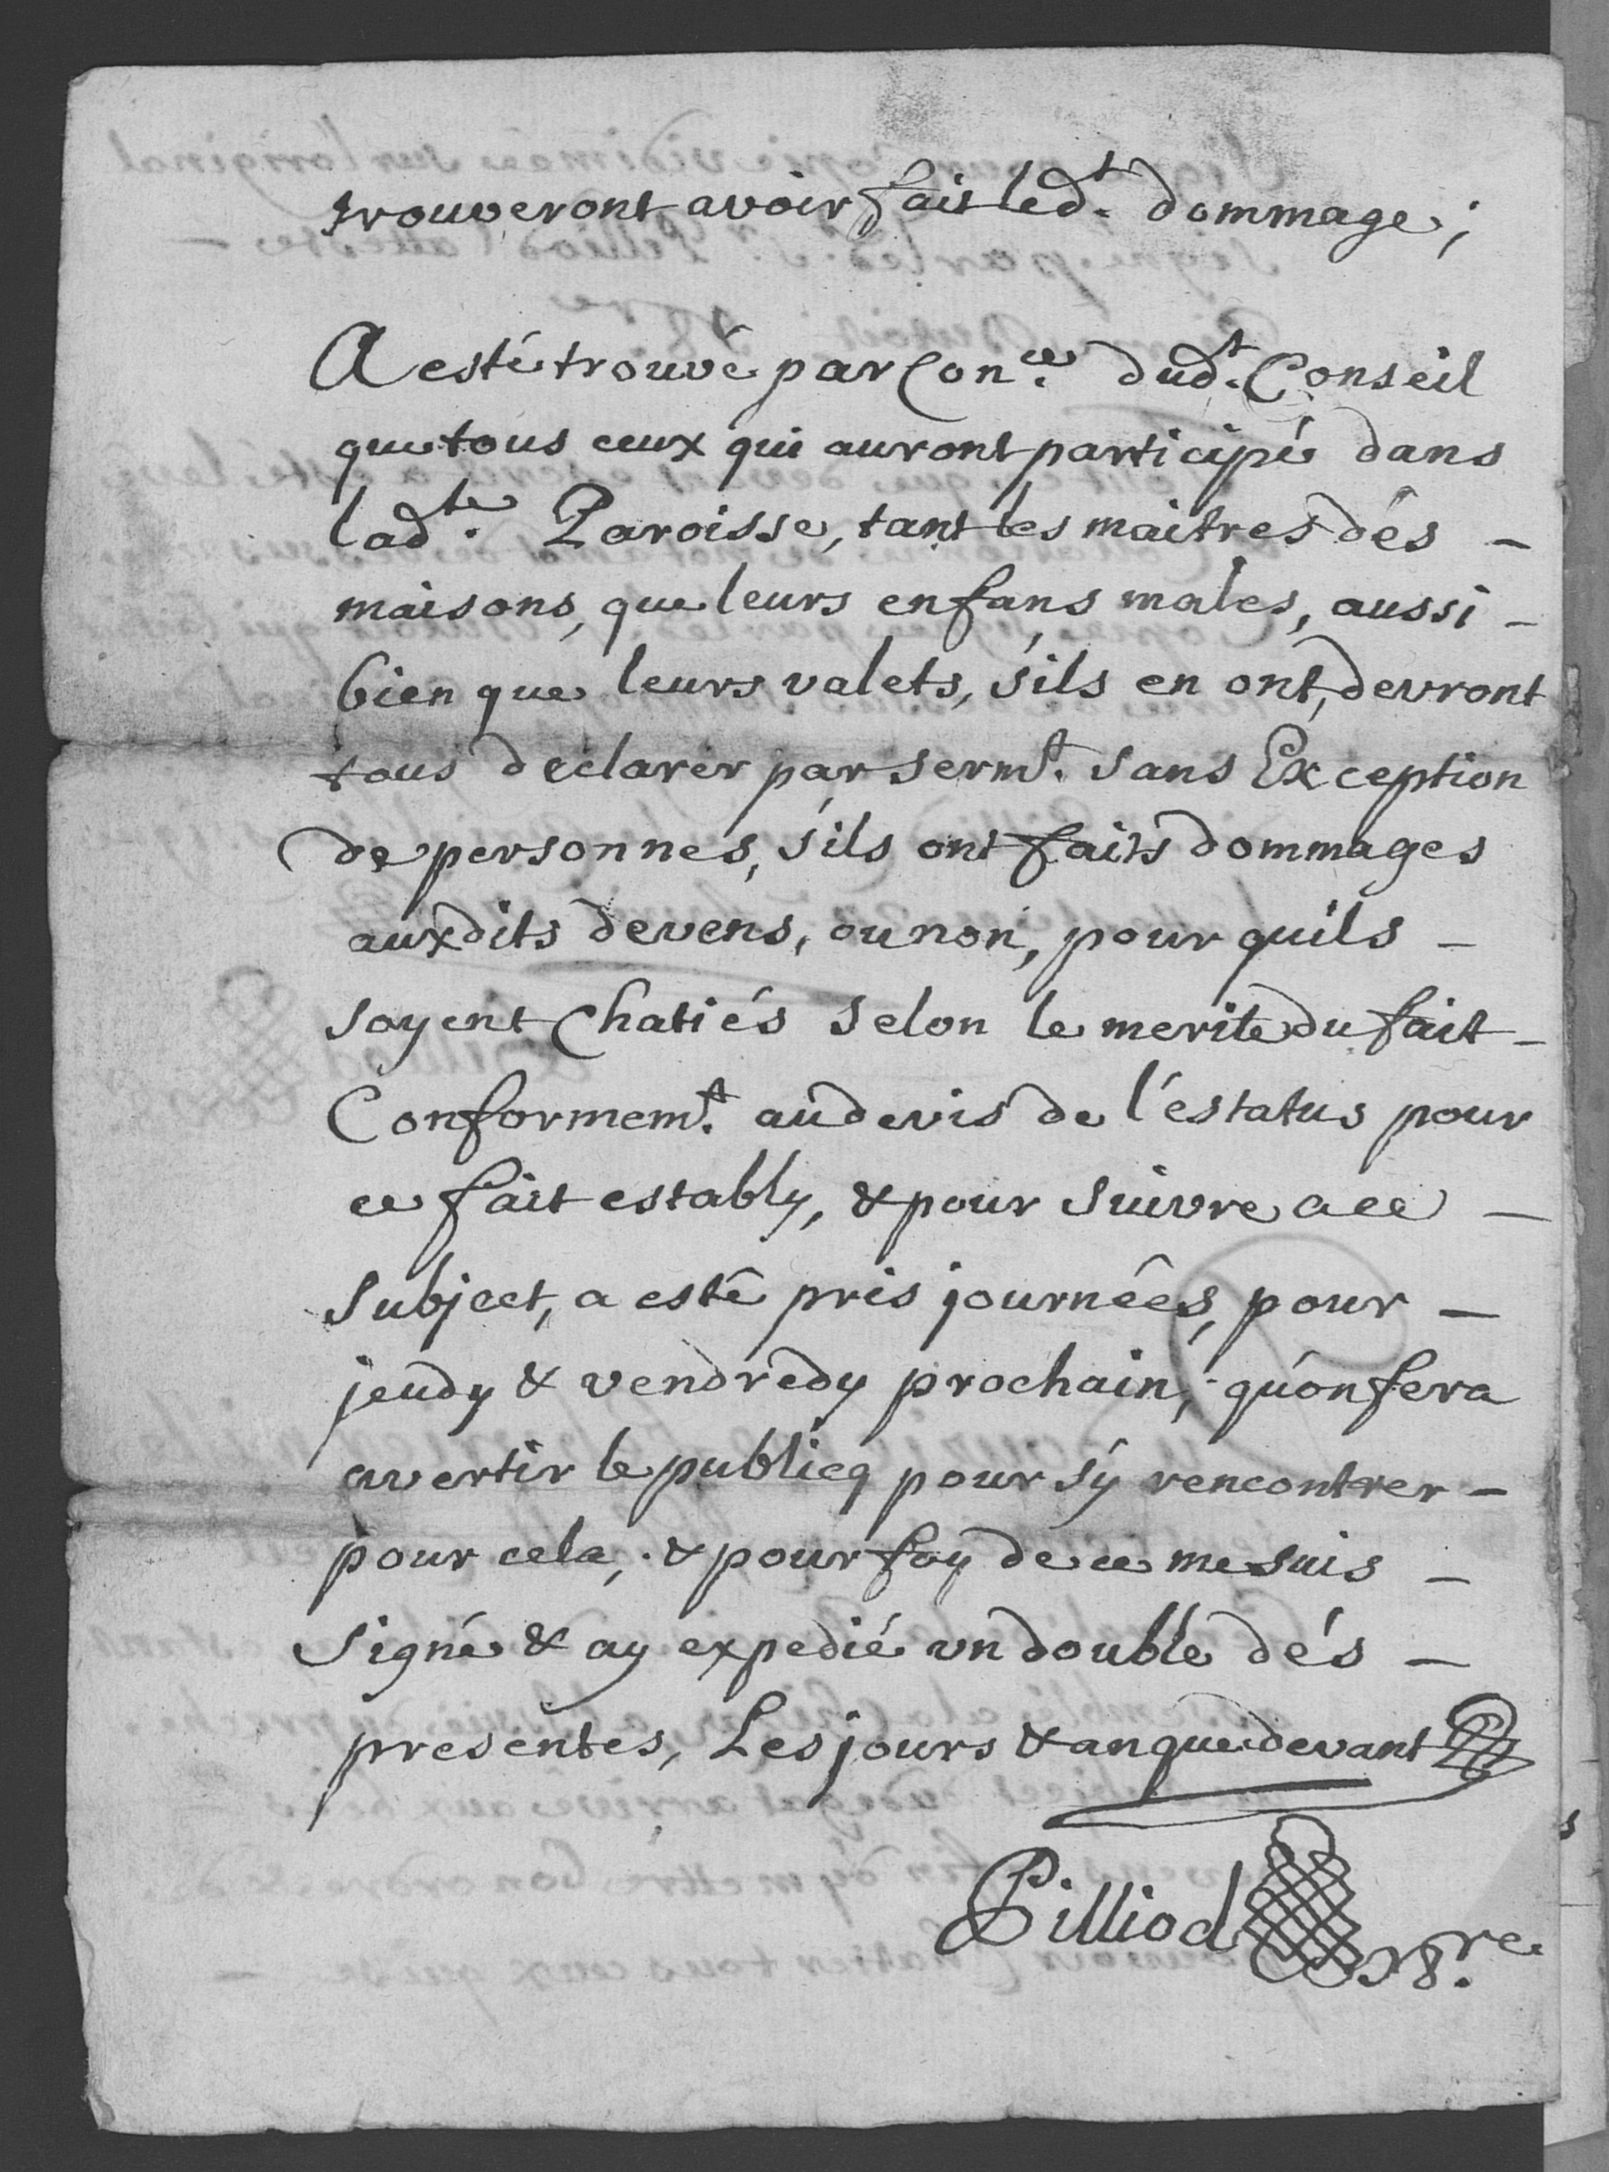 trouveront avoir fait led.t dommage;
A esté trouvé par Con.ce dud.t Conseil
que tous ceux qui auront participé dans
lad.te Paroisse, tant les maitres dés -
maisons, que leurs enfans males, aussi -
bien que leurs valets, s'ils en ont, devront
tous declarer par serm.t sans Exception
de personnes, s'ils ont faits dommages
auxdits devens, ou non, pour quils -
soyent Chatiés selon le merite du fait -
Conformem.t au devis de l'éstatus pour
ce fait estably, & pour suivre a ce -
Subject, a esté pris journées, pour -
jeudy & vendredy prochain; qu'on fera
avertir le publicq pour s'y rencontrer -
pour cela; & pour foy de ce me suis -
Signé & ay expedié un double dés -
presentes, Les jours & an que devant
Pilliod N.re